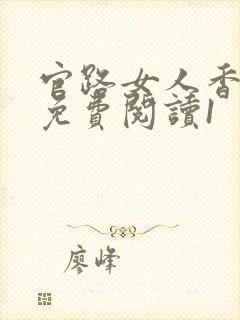 官路女人香
免費閱讀1
廖峰